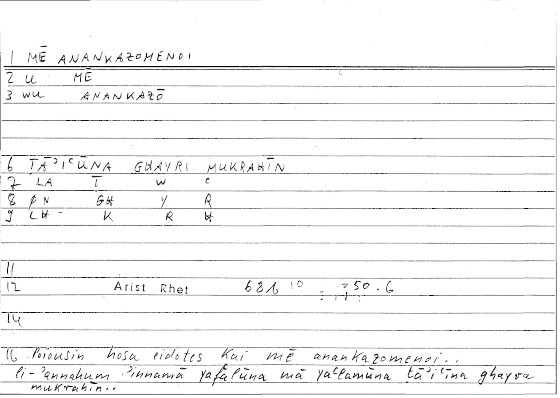 1 MĒ ANANKAZOMENOI
2 u MĒ
3 wu ANANKAZŌ
6 ṬĀʾIʿŪNA GHAYRI MUKRAHĪN
7 LA Ṭ W ʿ
8 ØN GH Y R
9 LH - K R H
11
12 Arist Rhet 68b 10 50.6
14
16 Poiousin hosa eidotes kai mē anankazomenoi..
li-ʾannahum ʾinnamā yafʿalūna mā yaʿlamūna ṭāʾiʿīna ghayra
mukrahīn..